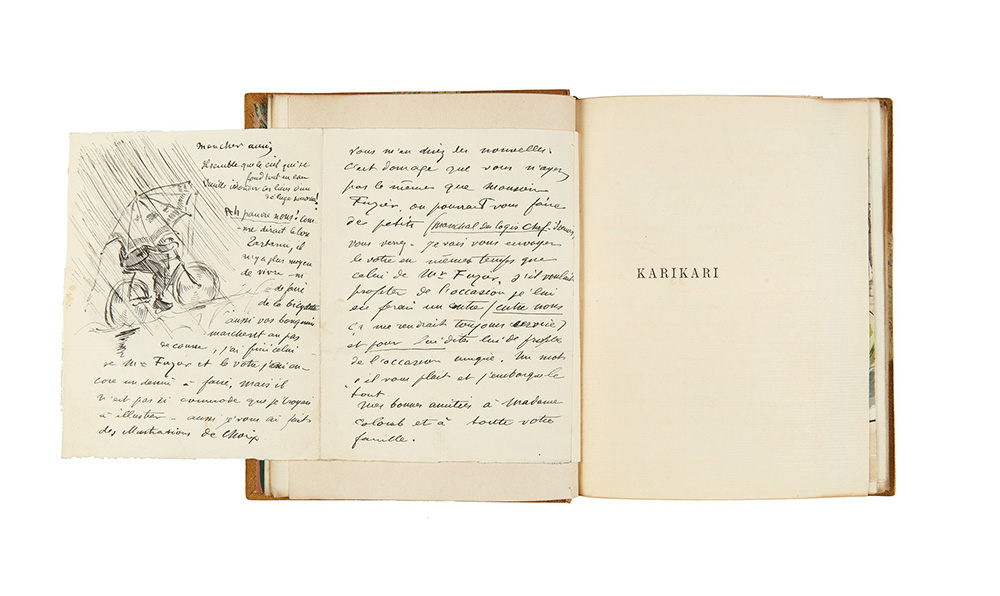 mon cher ami,
Il semble que le ciel qui se
fond tout en eau
veuille inonder ces lieux d'un
déluge nouveau!
Ah pauvre nous! com
-me dirait le
Tartarin, il
n'y a plus moyen
de vivre - ni
de faire
de la bicyclette
aussi vos bouquins
marchent au pas
de course, j'ai fini celui
de Mr Fuzier et le votre j'en ai en-
core un demi à faire, mais il
n'est pas si commode que je croyais
à illustrer - aussi je vous ai fait
des illustrations de choix
vous m'en direz des nouvelles.
C'est domage que vous n'ayez
pas le même que monsieur
Fuzier, on pourrait vous faire
de petits (marchal des logis chef)
vous verrez - je vais vous envoyer
le votre en mêmes temps que
celui de Mr Fuzier, s'il voulait
profiter de l'occasion je lui
en ferais un autre (entre nous
ça me rendrait toujours service)
et pour lui dites lui de profiter
de l'occasion unique. Un mot
s'il vous plait et j'embarque le
tout.
Mes bonnes amitiés à Madame
Colomb et à toute votre
famille.
KARIKARI